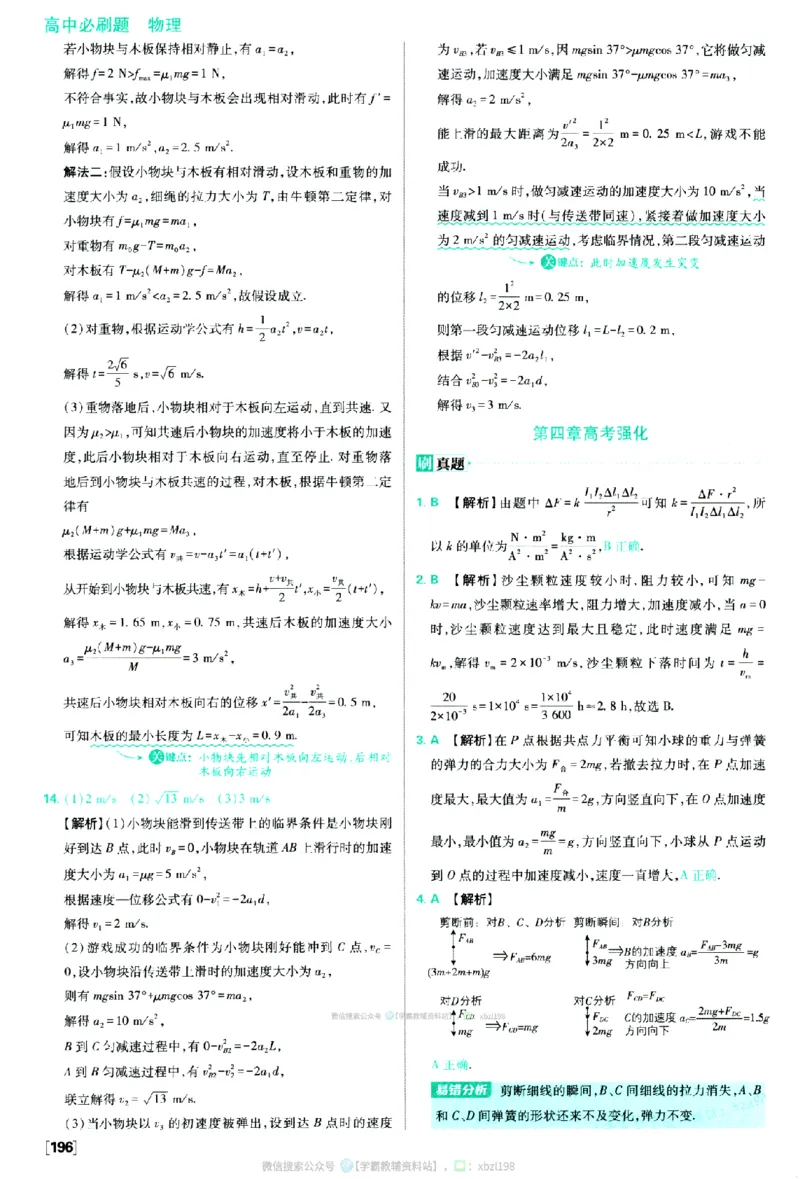 高中必刷题 物理
若小物块与木板保持相对静止,有 a₁=a₂,
解得f=2 N>fmax=μ₁mg=1 N,
不符合事实,故小物块与木板会出现相对滑动,此时有f'=
μ₁mg=1 N,
解得 a₁=1 m/s²,a₂=2.5 m/s².
解法二:假设小物块与木板有相对滑动,设木板和重物的加
速度大小为 a₂,细绳的拉力大小为 T,由牛顿第二定律,对
小物块有f=μ₁mg=ma₁,
对重物有 m₀g-T=m₀a₂,
对木板有 T-μ₂(M+m)g-f=Ma₂,
解得 a₁=1 m/s²<a₂=2.5 m/s²,故假设成立.
(2)对重物,根据运动学公式有 h=1/2 a₂t²,v=a₂t,
解得 t=2√6/5 s,v=√6 m/s.
(3)重物落地后,小物块相对于木板向左运动,直到共速. 又
因为μ₂>μ₁,可知共速后小物块的加速度将小于木板的加速
度,此后小物块相对于木板向右运动,直至停止. 对重物落
地后到小物块与木板共速的过程,对木板,根据牛顿第二定
律有
μ₂(M+m)g+μ₁mg=Ma₃,
根据运动学公式有 v共=v-a₃t'=a₁(t+t'),
从开始到小物块与木板共速,有 x木=h+(v+v共)/2 t',x小=v共/2 (t+t'),
解得 x木=1.65 m,x小=0.75 m,共速后木板的加速度大小
a₃=(μ₂(M+m)g-μ₁mg)/M=3 m/s²,
共速后小物块相对木板向右的位移 x'=v共²/2a₁-v共²/2a₃=0.5 m,
可知木板的最小长度为 L=x木-x小=0.9 m.
关键点: 小物块先相对木板向左运动,后相对
木板向右运动
14. (1)2 m/s (2)√13 m/s (3)3 m/s
【解析】(1)小物块能滑到传送带上的临界条件是小物块刚
好到达 B 点,此时 vB=0,小物块在轨道 AB 上滑行时的加速
度大小为 a₁=μg=5 m/s²,
根据速度—位移公式有 0-v₁²=-2a₁d,
解得 v₁=2 m/s.
(2)游戏成功的临界条件为小物块刚好能冲到 C 点,vC=
0,设小物块沿传送带上滑时的加速度大小为 a₂,
则有 mgsin 37°+μmgcos 37°=ma₂,
解得 a₂=10 m/s²,
B 到 C 匀减速过程中,有 0-vB2²=-2a₂L,
A 到 B 匀减速过程中,有 vB2²-v₂²=-2a₁d,
联立解得 v₂=√13 m/s.
(3)当小物块以 v₃ 的初速度被弹出,设到达 B 点时的速度
[196]
为 vB3,若 vB3≤1 m/s,因 mgsin 37°>μmgcos 37°,它将做匀减
速运动,加速度大小满足 mgsin 37°-μmgcos 37°=ma₃,
解得 a₃=2 m/s²,
能上滑的最大距离为 v'²/2a₃=1²/2×2 m=0.25 m<L,游戏不能
成功.
当 vB3>1 m/s 时,做匀减速运动的加速度大小为 10 m/s²,当
速度减到 1 m/s 时(与传送带同速),紧接着做加速度大小
为 2 m/s² 的匀减速运动,考虑临界情况,第二段匀减速运动
关键点: 此时加速度发生突变
的位移 l₂=1²/2×2 m=0.25 m,
则第一段匀减速运动位移 l₁=L-l₂=0.2 m,
根据 v'²-vB3²=-2a₂l₁,
结合 vB3²-v₃²=-2a₁d,
解得 v₃=3 m/s.
第四章高考强化
刷真题
1. B 【解析】由题中 ΔF=k I₁I₂Δl₁Δl₂/r² 可知 k=ΔF·r²/I₁I₂Δl₁Δl₂,所
以 k 的单位为 N·m²/A²·m²=kg·m/A²·s²,B 正确.
2. B 【解析】沙尘颗粒速度较小时,阻力较小,可知 mg-
kv=ma,沙尘颗粒速率增大,阻力增大,加速度减小,当 a=0
时,沙尘颗粒速度达到最大且稳定,此时速度满足 mg=
kvm,解得 vm=2×10⁻³ m/s,沙尘颗粒下落时间为 t=h/vm=
20/2×10⁻³ s=1×10⁴ s=1×10⁴/3 600 h≈2.8 h,故选 B.
3. A 【解析】在 P 点根据共点力平衡可知小球的重力与弹簧
的弹力的合力大小为 F合=2mg,若撤去拉力时,在 P 点加速
度最大,最大值为 a₁=F合/m=2g,方向竖直向下,在 O 点加速度
最小,最小值为 a₂=mg/m=g,方向竖直向下,小球从 P 点运动
到 O 点的过程中加速度减小,速度一直增大,A 正确.
4. A 【解析】
剪断前: 对B、C、D分析 剪断瞬间: 对B分析
FAB ⇒FAB=6mg (3m+2m+m)g
FAB 3mg ⇒B的加速度 aB=(FAB-3mg)/3m=g 方向向上
对D分析 对C分析 FCD=FDC
FCD mg ⇒FCD=mg
FDC 2mg C的加速度 aC=(2mg+FDC)/2m=1.5g 方向向下
微信搜索公众号【学霸教辅资料站】, : xbzl198
A 正确.
易错分析 剪断细线的瞬间,B、C 间细线的拉力消失,A、B
和 C、D 间弹簧的形状还来不及变化,弹力不变.
微信搜索公众号【学霸教辅资料站】, : xbzl198